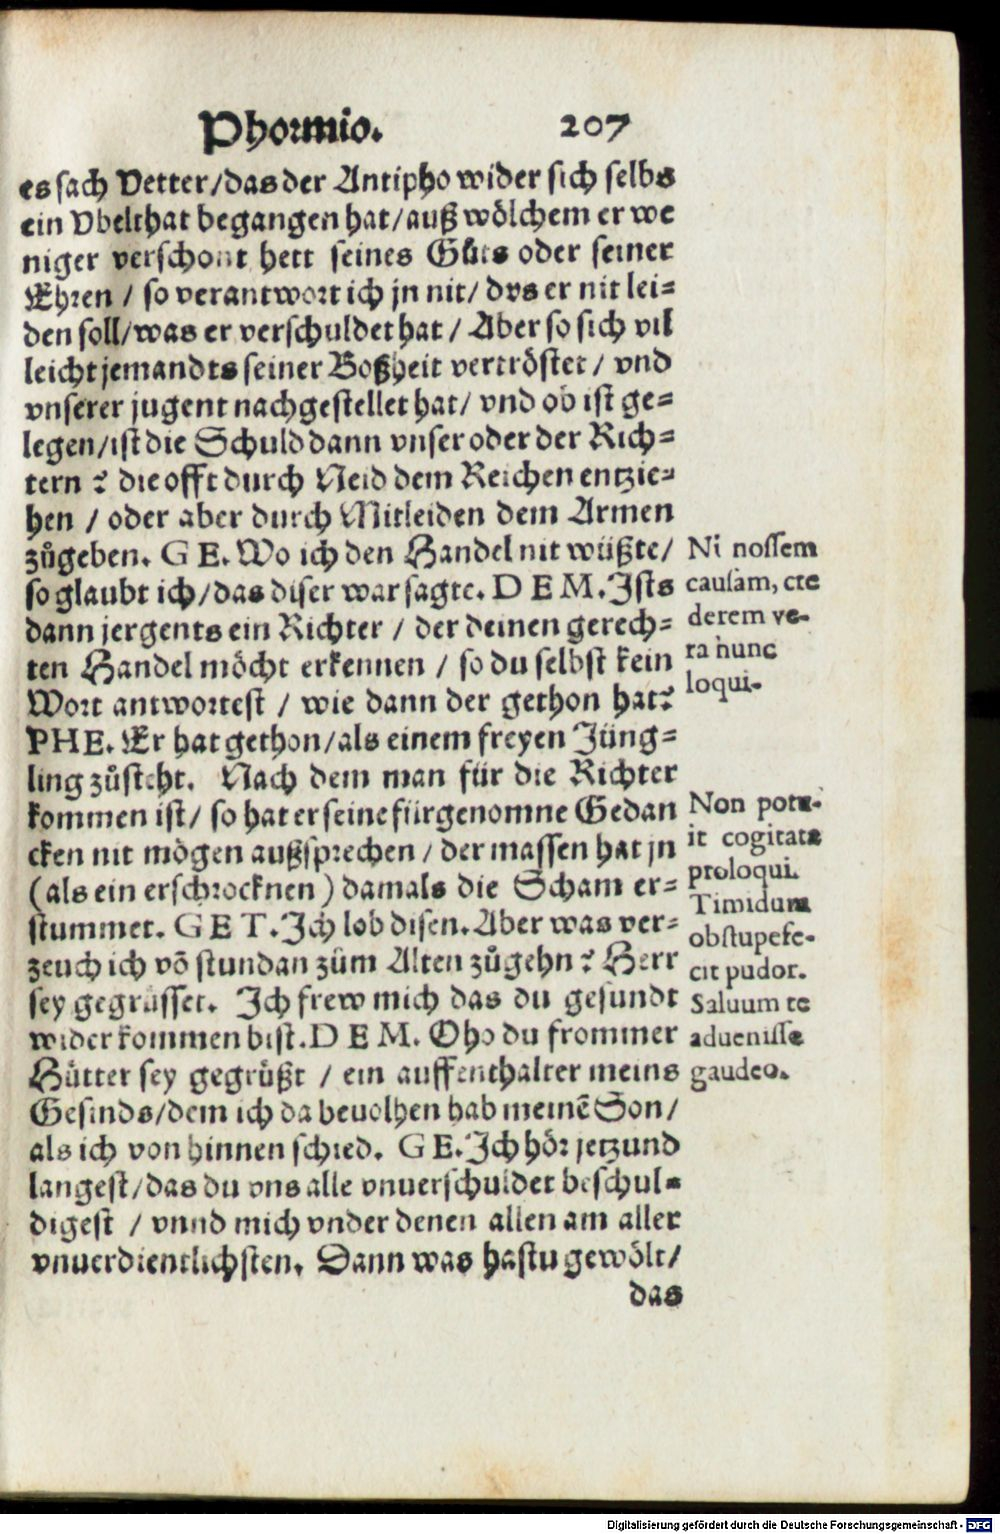 Phormio. 207
es sach Vetter/das der Antipho wider sich selbs
ein Vbelthat begangen hat/auß wölchem er we
niger verschont hett seines Gůts oder seiner
Ehren / so verantwort ich jn nit/ dvs er nit lei=
den soll/was er verschuldet hat / Aber so sich vil
leicht jemandts seiner Boßheit vertröstet / vnd
vnserer jugent nachgestellet hat/ vnd ob ist ge=
legen/ist die Schuld dann vnser oder der Rich=
tern ? die offt durch Neid dem Reichen entzie=
hen / oder aber durch Mitleiden dem Armen
zůgeben. G E. Wo ich den Handel nit wüßte/
so glaubt ich/das diser war sagte. D E M. Ists
dann jergents ein Richter / der deinen gerech=
ten Handel möcht erkennen / so du selbst kein
Wort antwortest / wie dann der gethon hat?
PHE. Er hat gethon/als einem freyen Jüng=
ling zůsteht. Nach dem man für die Richter
kommen ist/ so hat er seine fürgenomne Gedan
cken nit mögen außsprechen / der massen hat jn
(als ein erschrocknen) damals die Scham er=
stummet. G E T. Ich lob disen. Aber was ver=
zeuch ich võ stundan zům Alten zůgehn ? Herr
sey gegrüsset. Ich frew mich das du gesundt
wider kommen bist. D E M. Oho du frommer
Hütter sey gegrüßt / ein auffenthalter meins
Gesinds/dem ich da beuolhen hab meinẽ Son/
als ich von hinnen schied. G E. Ich hör jetzund
langest/das du vns alle vnuerschuldet beschul=
digest / vnnd mich vnder denen allen am aller
vnuerdientlichsten. Dann was hastu gewölt/
das
Ni nossem
causam, cre
derem ve-
ra nunc
loqui.
Non potu-
it cogitata
proloqui.
Timidum
obstupefe-
cit pudor.
Saluum te
aduenisse
gaudeo.
Digitalisierung gefördert durch die Deutsche Forschungsgemeinschaft - DFG